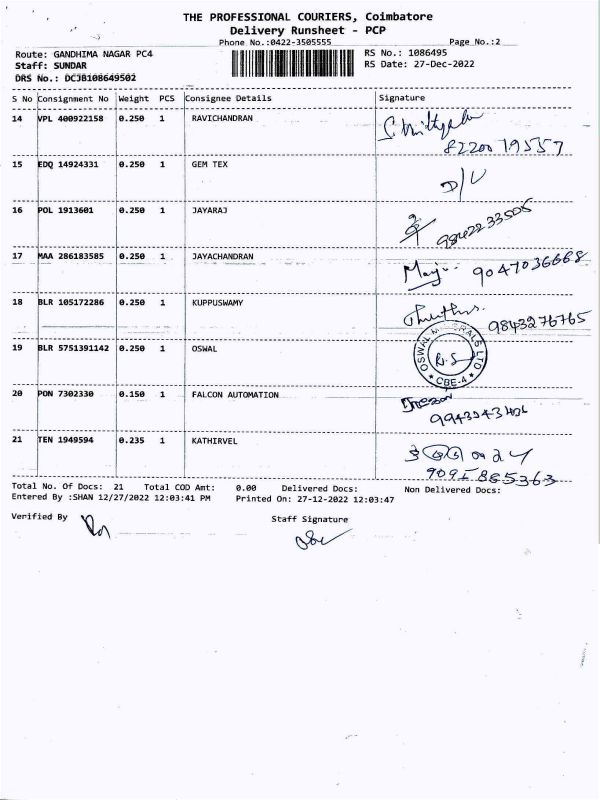 THE PROFESSIONAL COURIERS, Coimbatore
Delivery Runsheet - PCP
Phone No.:0422-3505555 Page No.:2
Route: GANDHIMA NAGAR PC4 RS No.: 1086495
Staff: SUNDAR RS Date: 27-Dec-2022
DRS No.: DCJB108649502
S No Consignment No Weight PCS Consignee Details Signature
14 VPL 400922158 0.250 1 RAVICHANDRAN
8220019557
15 EDQ 14924331 0.250 1 GEM TEX D/L
16 POL 1913601 0.250 1 JAYARAJ
9842233505
17 MAA 286183585 0.250 1 JAYACHANDRAN 9047036668
18 BLR 105172286 0.250 1 KUPPUSWAMY
9843276765
19 BLR 5751391142 0.250 1 OSWAL OSWAL MINERALS LTD CBE-4
20 PON 7302330 0.150 1 FALCON AUTOMATION
21 TEN 1949594 0.235 1 KATHIRVEL
9095885363
Total No. Of Docs: 21 Total COD Amt: 0.00 Delivered Docs: Non Delivered Docs:
Entered By :SHAN 12/27/2022 12:03:41 PM Printed On: 27-12-2022 12:03:47
Verified By Staff Signature